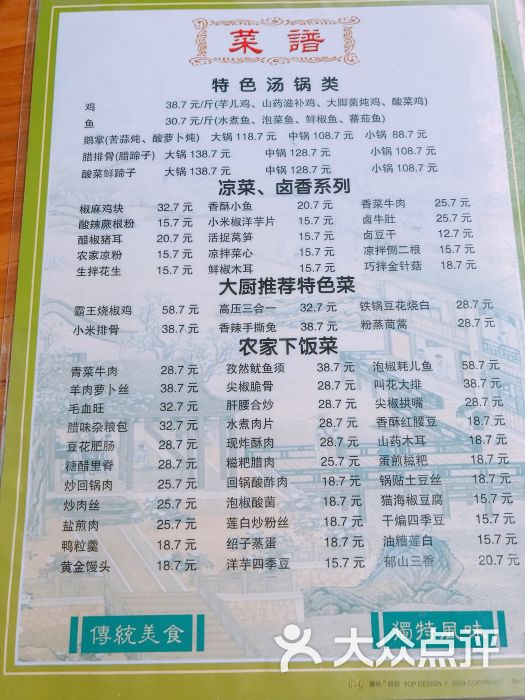 菜譜
特色汤锅类
鸡 38.7 元/斤(芋儿鸡、山药滋补鸡、大脚菌炖鸡、酸菜鸡)
鱼 30.7 元/斤(水煮鱼、泡菜鱼、鲜椒鱼、蕃茄鱼)
鹅掌(苦蒜炖、酸萝卜炖) 大锅 118.7 元 中锅 108.7 元 小锅 88.7 元
腊排骨(腊蹄子) 大锅 138.7 元 中锅 128.7 元 小锅 108.7 元
酸菜鲜蹄子 大锅 138.7 元 中锅 128.7 元 小锅 108.7 元
凉菜、卤香系列
椒麻鸡块 32.7 元 香酥小鱼 20.7 元 香菜牛肉 25.7 元
酸辣蕨根粉 15.7 元 小米椒洋芋片 15.7 元 卤牛肚 25.7 元
醋椒猪耳 20.7 元 活捉莴笋 15.7 元 卤豆干 12.7 元
农家凉粉 15.7 元 凉拌菜心 15.7 元 凉拌侧二根 15.7 元
生拌花生 15.7 元 鲜椒木耳 15.7 元 巧拌金针菇 18.7 元
大厨推荐特色菜
霸王烧椒鸡 58.7 元 高压三合一 32.7 元 铁锅豆花烧白 28.7 元
小米排骨 38.7 元 香辣手撕兔 38.7 元 粉蒸茼蒿 28.7 元
农家下饭菜
青菜牛肉 28.7 元 孜然鱿鱼须 38.7 元 泡椒耗儿鱼 58.7 元
羊肉萝卜丝 38.7 元 尖椒脆骨 28.7 元 叫花大排 38.7 元
毛血旺 32.7 元 肝腰合炒 32.7 元 尖椒拱嘴 28.7 元
腊味杂粮包 32.7 元 水煮肉片 28.7 元 香酥红腰豆 18.7 元
豆花肥肠 28.7 元 现炸酥肉 28.7 元 山药木耳 18.7 元
糖醋里脊 28.7 元 糍粑腊肉 25.7 元 蛋煎糍粑 18.7 元
炒回锅肉 25.7 元 回锅酸酢肉 18.7 元 锅贴土豆丝 18.7 元
炒肉丝 25.7 元 泡椒酸菌 28.7 元 猫海椒豆腐 15.7 元
盐煎肉 25.7 元 莲白炒粉丝 18.7 元 干煸四季豆 15.7 元
鸭粒羹 18.7 元 绍子蒸蛋 18.7 元 油糟莲白 15.7 元
黄金馒头 18.7 元 洋芋四季豆 15.7 元 郁山三香 20.7 元
傳統美食
獨特風味
大众点评
TOP DESIGN © 2004 COPYRIGHT